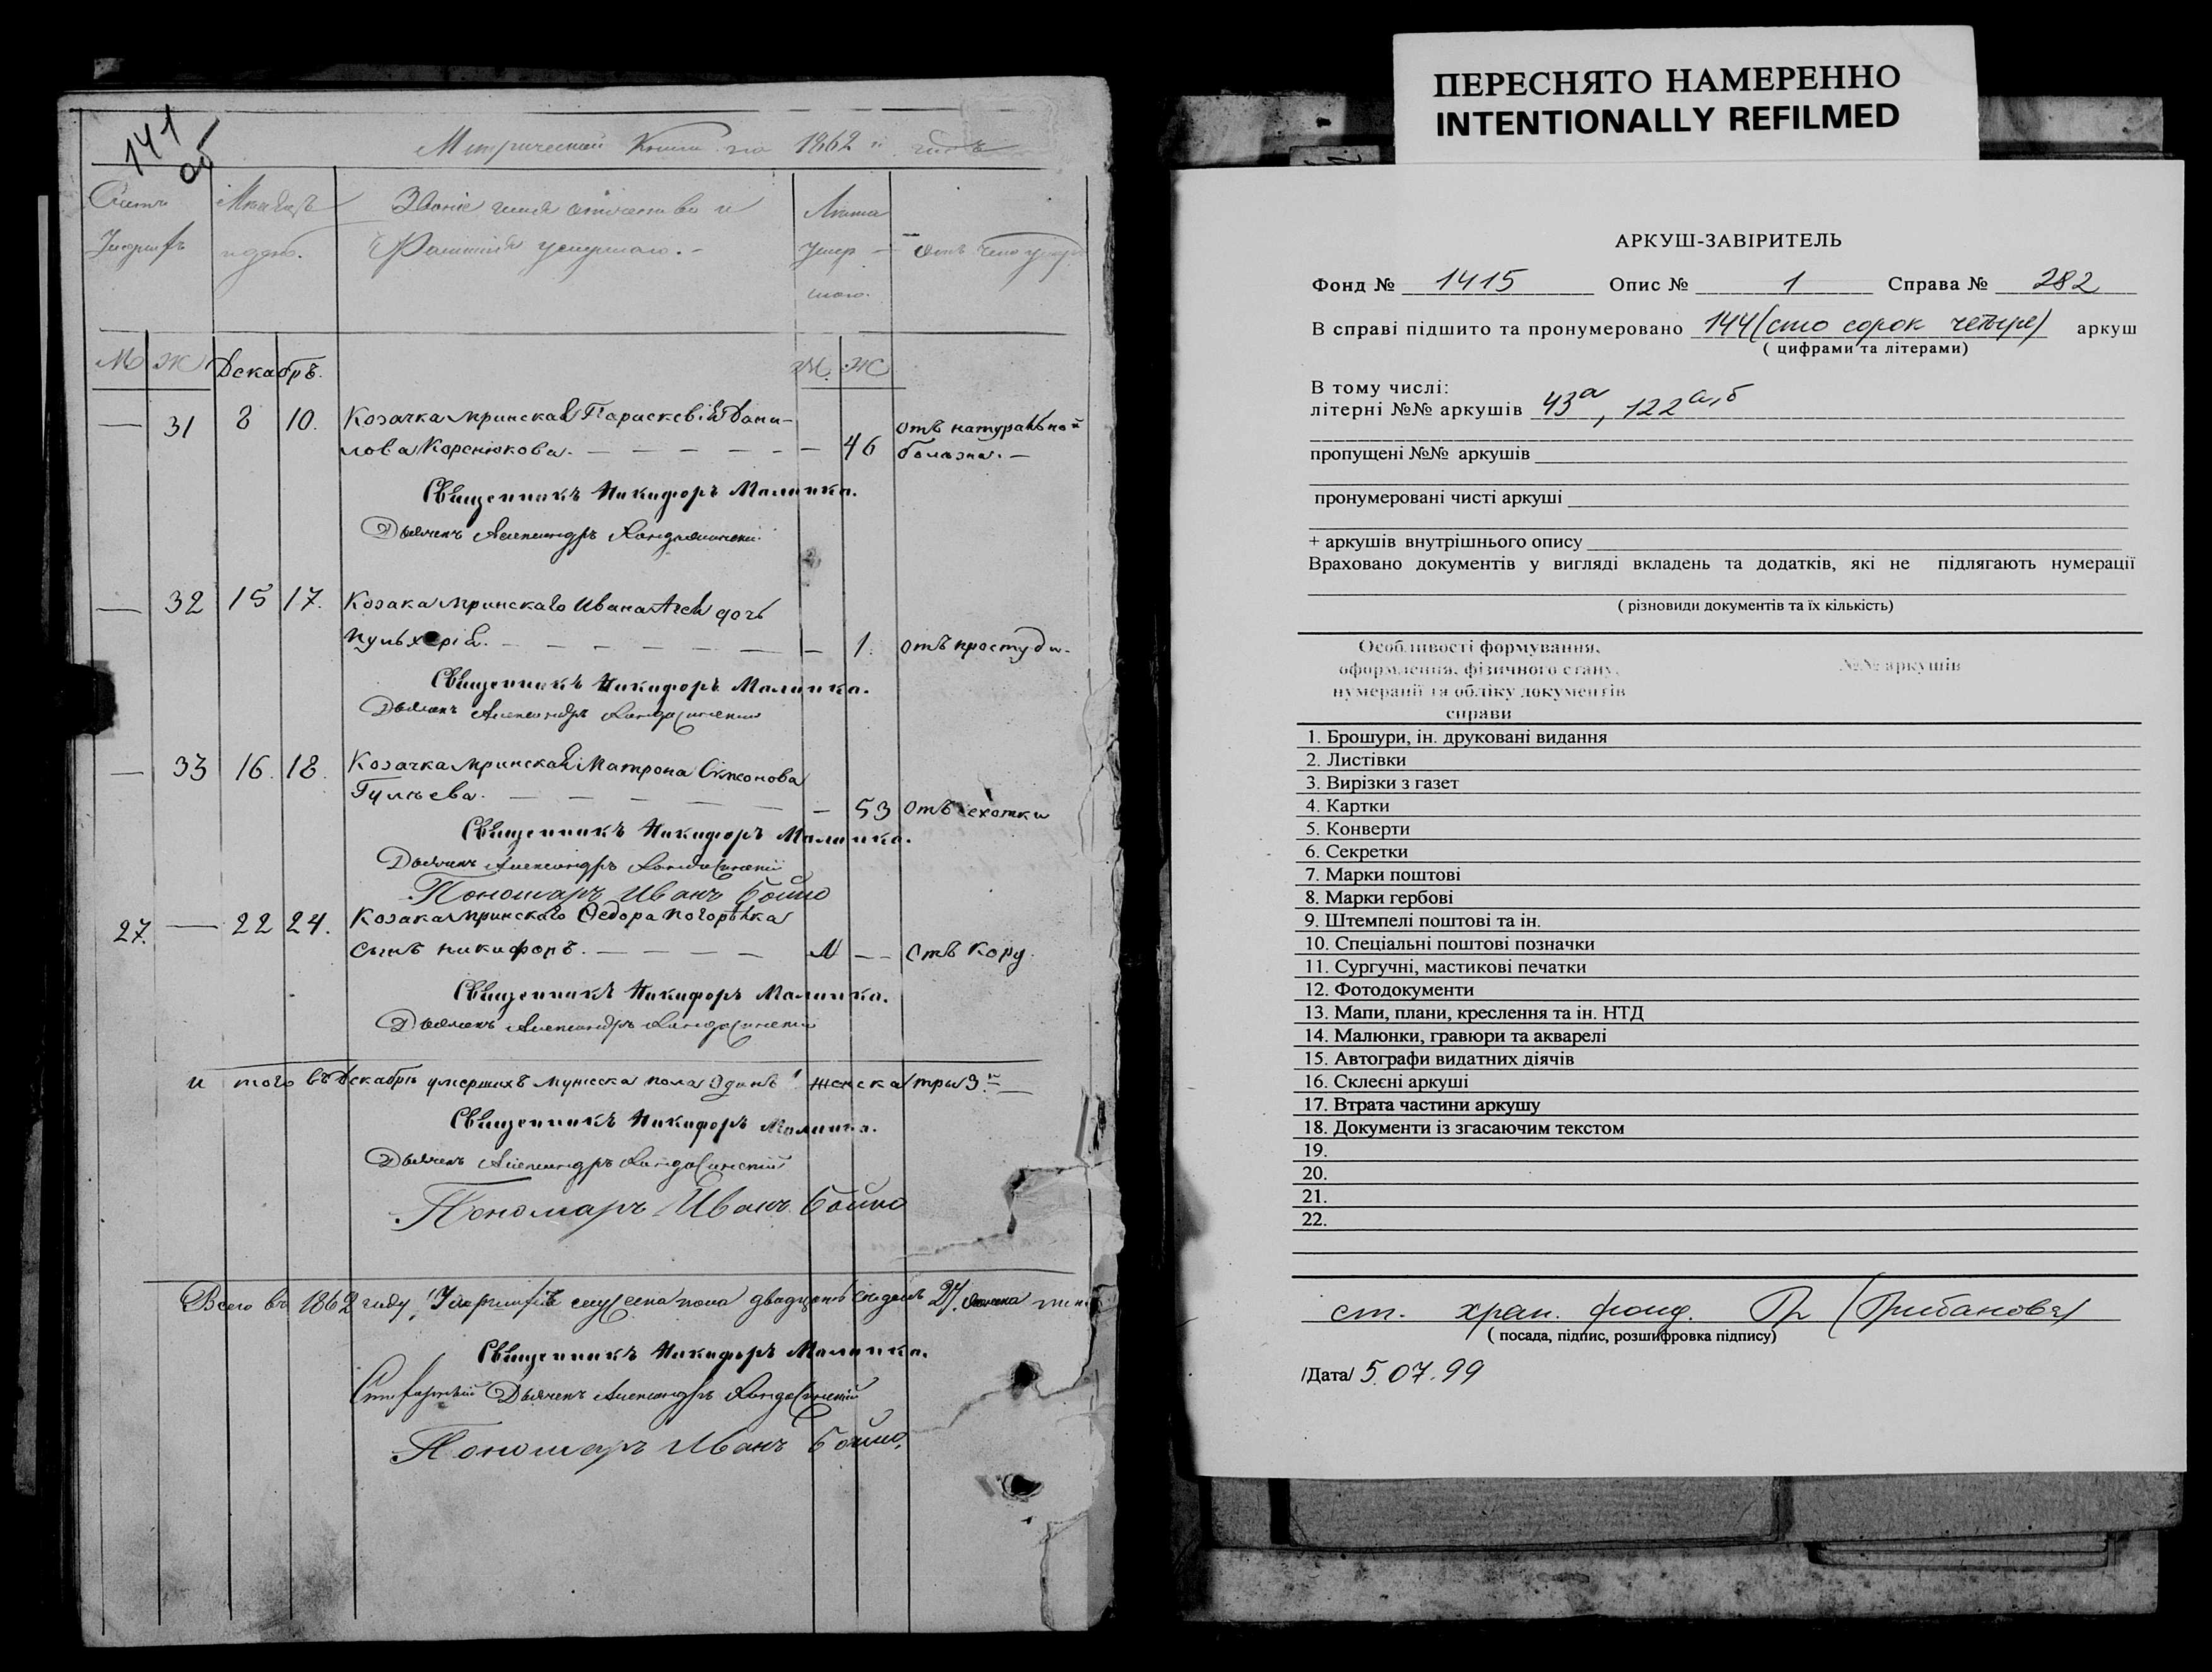 141
об
Метрической Книги на 1862 й годъ
Счетъ Умершихъ
Мѣсяцъ и день.
Званіе имя отчество и Фамилія умершаго.-
Лѣта умершаго.
Отъ чего умеръ
М Ж Декабръ. М. Ж
— 31 8 10. Козачка мринская Параскевія Дани-
лова Корснюкова. — — — — — — 46 отъ натуральной болѣзни. —
Священникъ Никифоръ Малинка.
Дьячекъ Александръ
— 32 15 17. Козака мринскаго Ивана дочь
Пульхерія. — — — — — — 1. отъ простуды.
Священникъ Никифоръ Малинка.
Дьячекъ Александръ
— 33 16. 18. Козачка мринская Матрона Симеонова
Гулѣева. — — — — — — 53 отъ сухотки
Священникъ Никифоръ Малинка.
Дьячекъ Александръ
Пономаръ Иванъ Бойко
27. — 22 24. Козака мринскаго Ѳедора Погорѣлка
сынъ Никифоръ. — — — — — — Отъ Кору.
Священникъ Никифоръ Малинка.
Дьячекъ Александръ
и того въ Декабрѣ умершихъ мужеска пола Одинъ 1 женска три 3. —
Священникъ Никифоръ Малинка.
Дьячекъ Александръ
Пономаръ Иванъ Бойко
Всего въ 1862 году, Умершихъ мужеска пола двадцать седмь 27 женска
Священникъ Никифоръ Малинка.
Дьячекъ Александръ
Пономаръ Иванъ Бойко,
ПЕРЕСНЯТО НАМЕРЕННО
INTENTIONALLY REFILMED
АРКУШ-ЗАВІРИТЕЛЬ
Фонд № 1415 Опис № 1 Справа № 282
В справі підшито та пронумеровано 144 (сто сорок четыре) аркуш
( цифрами та літерами)
В тому числі:
літерні №№ аркушів 43а, 122а,б
пропущені №№ аркушів
пронумеровані чисті аркуші
+ аркушів внутрішнього опису
Враховано документів у вигляді вкладень та додатків, які не підлягають нумерації
( різновиди документів та їх кількість)
Особливості формування, №№ аркушів
оформлення, фізичного стану,
нумерації та обліку документів
справи
1. Брошури, ін. друковані видання
2. Листівки
3. Вирізки з газет
4. Картки
5. Конверти
6. Секретки
7. Марки поштові
8. Марки гербові
9. Штемпелі поштові та ін.
10. Спеціальні поштові позначки
11. Сургучні, мастикові печатки
12. Фотодокументи
13. Мапи, плани, креслення та ін. НТД
14. Малюнки, гравюри та акварелі
15. Автографи видатних діячів
16. Склеєні аркуші
17. Втрата частини аркушу
18. Документи із згасаючим текстом
19.
20.
21.
22.
ст. хран. фонд.
( посада, підпис, розшифровка підпису)
/Дата/ 5.07.99